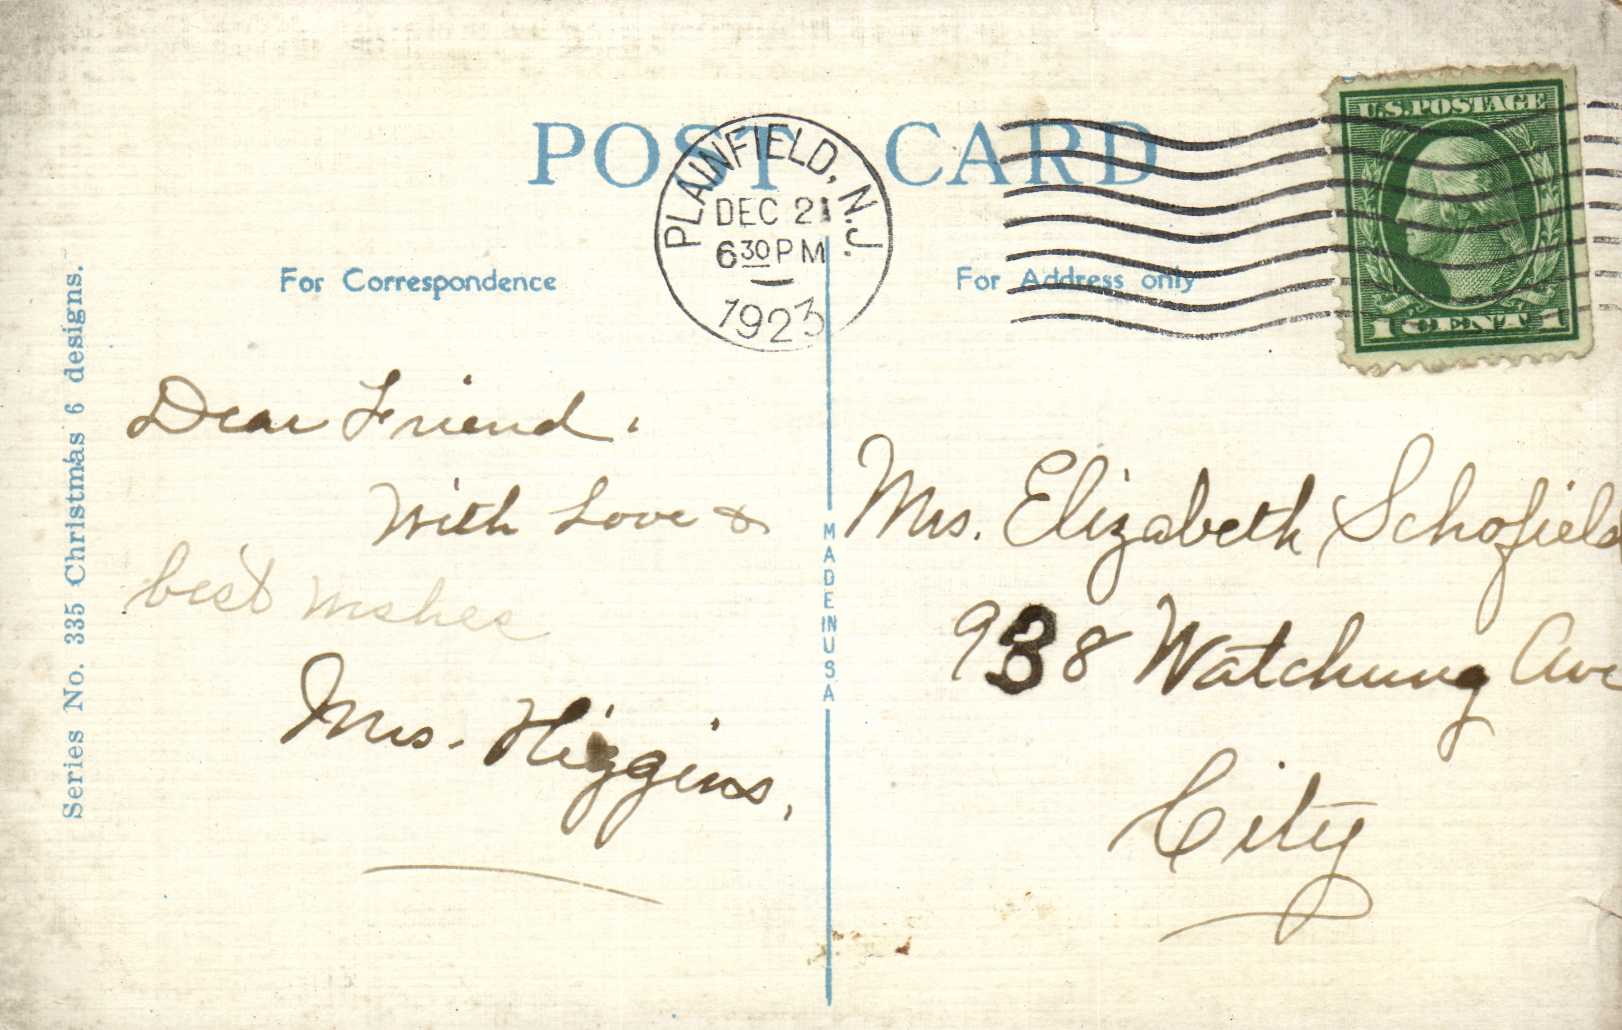 POST CARD
PLAINFIELD, N.J.
DEC 21
6 30 PM
1923
U.S. POSTAGE
1 CENT 1
For Correspondence
For Address only
Series No. 335 Christmas 6 designs.
MADE IN USA
Dear Friend.
With Love &
best wishes
Mrs. Higgins,
Mrs. Elizabeth Schofield
938 Watchung Ave
City